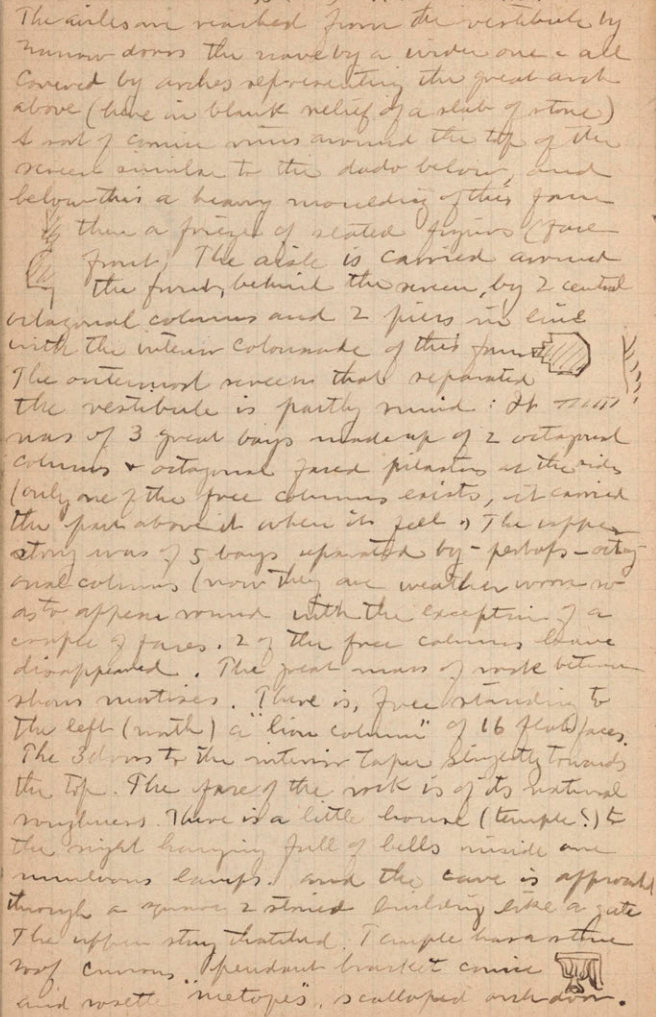 The aisles are reached from the vestibule by
narrow doors the nave by a wider one & all
covered by arches representing the great arch
above (here in blank relief of a slab of stone)
A sort of cornice runs around the top of the
screen similar to the dado below, and
below this a heavy moulding of this form
then a frieze of seated figures (face
front) The aisle is carried around
the front, behind the screen, by 2 central
octagonal columns and 2 piers in line
with the interior colonnade of this form
The outermost screen that separated
the vestibule is partly ruined: It
was of 3 great bays made up of 2 octagonal
columns & octagonal faced pilasters at the sides
(only one of the free columns exists, it carried
the part above it when it fell.) The upper
story was of 5 bays separated by - perhaps - octag-
onal columns (now they are weather worn so
as to appear round with the exception of a
couple of faces. 2 of the free columns have
disappeared. The great mass of rock between
shows mortises. There is, free standing to
the left (north) a "lion column" of 16 flat faces.
The 3 doors to the interior taper slightly towards
the top. The face of the rock is of its natural
roughness. There is a little house (temple?) to
the right hanging full of bells inside are
numerous lamps. and the cave is approached
through a square 2 storied building like a gate
The upper story thatched. Temple has a stone
roof curious pendant bracket cornice
and rosette "metopes", scalloped arch door.